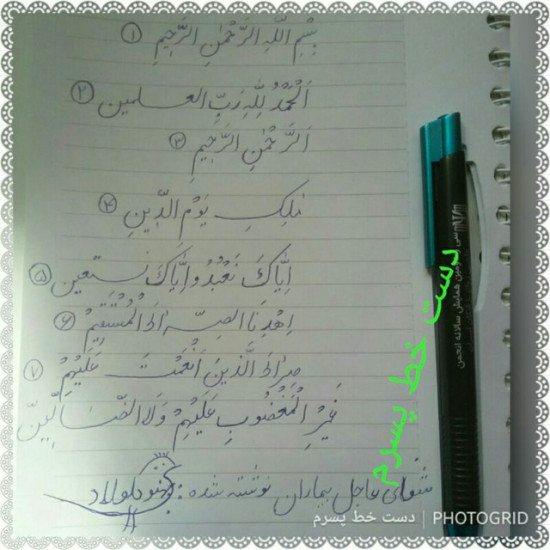 بِسْمِ اللَّهِ الرَّحْمٰنِ الرَّحِيمِ ①
اَلْحَمْدُ لِلّٰهِ رَبِّ العلمین ②
اَلرَّحْمٰنِ الرَّحِيمِ ③
مٰلِكِ يَوْمِ الدِّينِ ④
اِيَّاكَ نَعْبُدُ وَاِيَّاكَ نَستَعین ⑤
اِهْدِنَا الصِّرٰاطَ الْمُسْتَقِيمَ ⑥
صِرٰاطَ الَّذِينَ اَنْعَمْتَ عَلَيْهِمْ ⑦
غَيْرِ الْمَغْضُوبِ عَلَيْهِمْ وَلَا الضّٰالّينَ
شفای عاجل بیماران نوشته شده:
دست خط پسرم
سی و سومین همایش سالانه انجمن
دست خط پسرم | PHOTOGRID